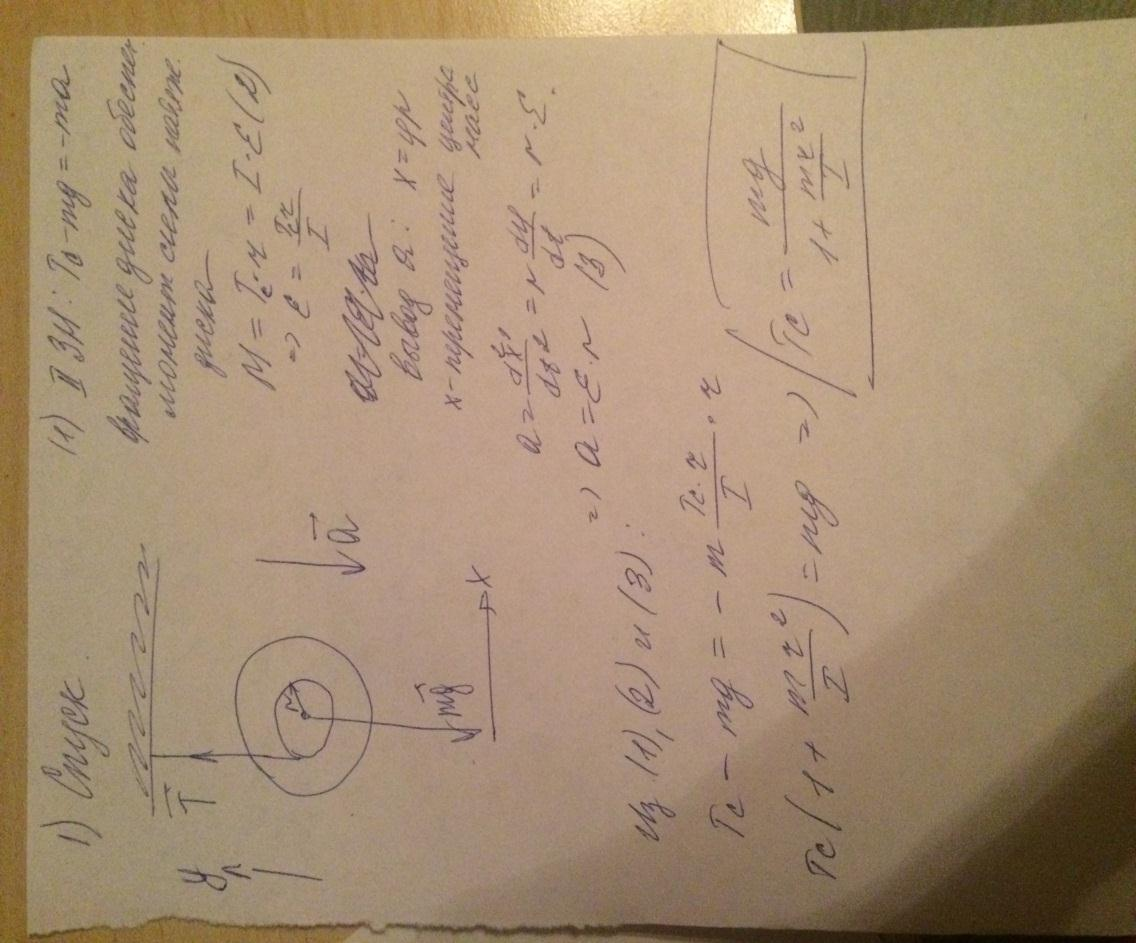 1) Спуск
(1) II ЗН: Tc - mg = -ma
вращение диска обеспеч.
момент силы натяж.
диска
M = Tc·r = I·ε (2)
=> ε = Tc·r / I
вывод a: x = φr
x - перемещение центра
масс
a = d²x / dt² = r dφ / dt = r·ε.
=> a = ε·r (3)
y
T
r
a
mg
x
Из (1), (2) и (3):
Tc - mg = - m Tc·r / I · r
Tc(1 + mr² / I) = mg => Tc = mg / (1 + mr² / I)